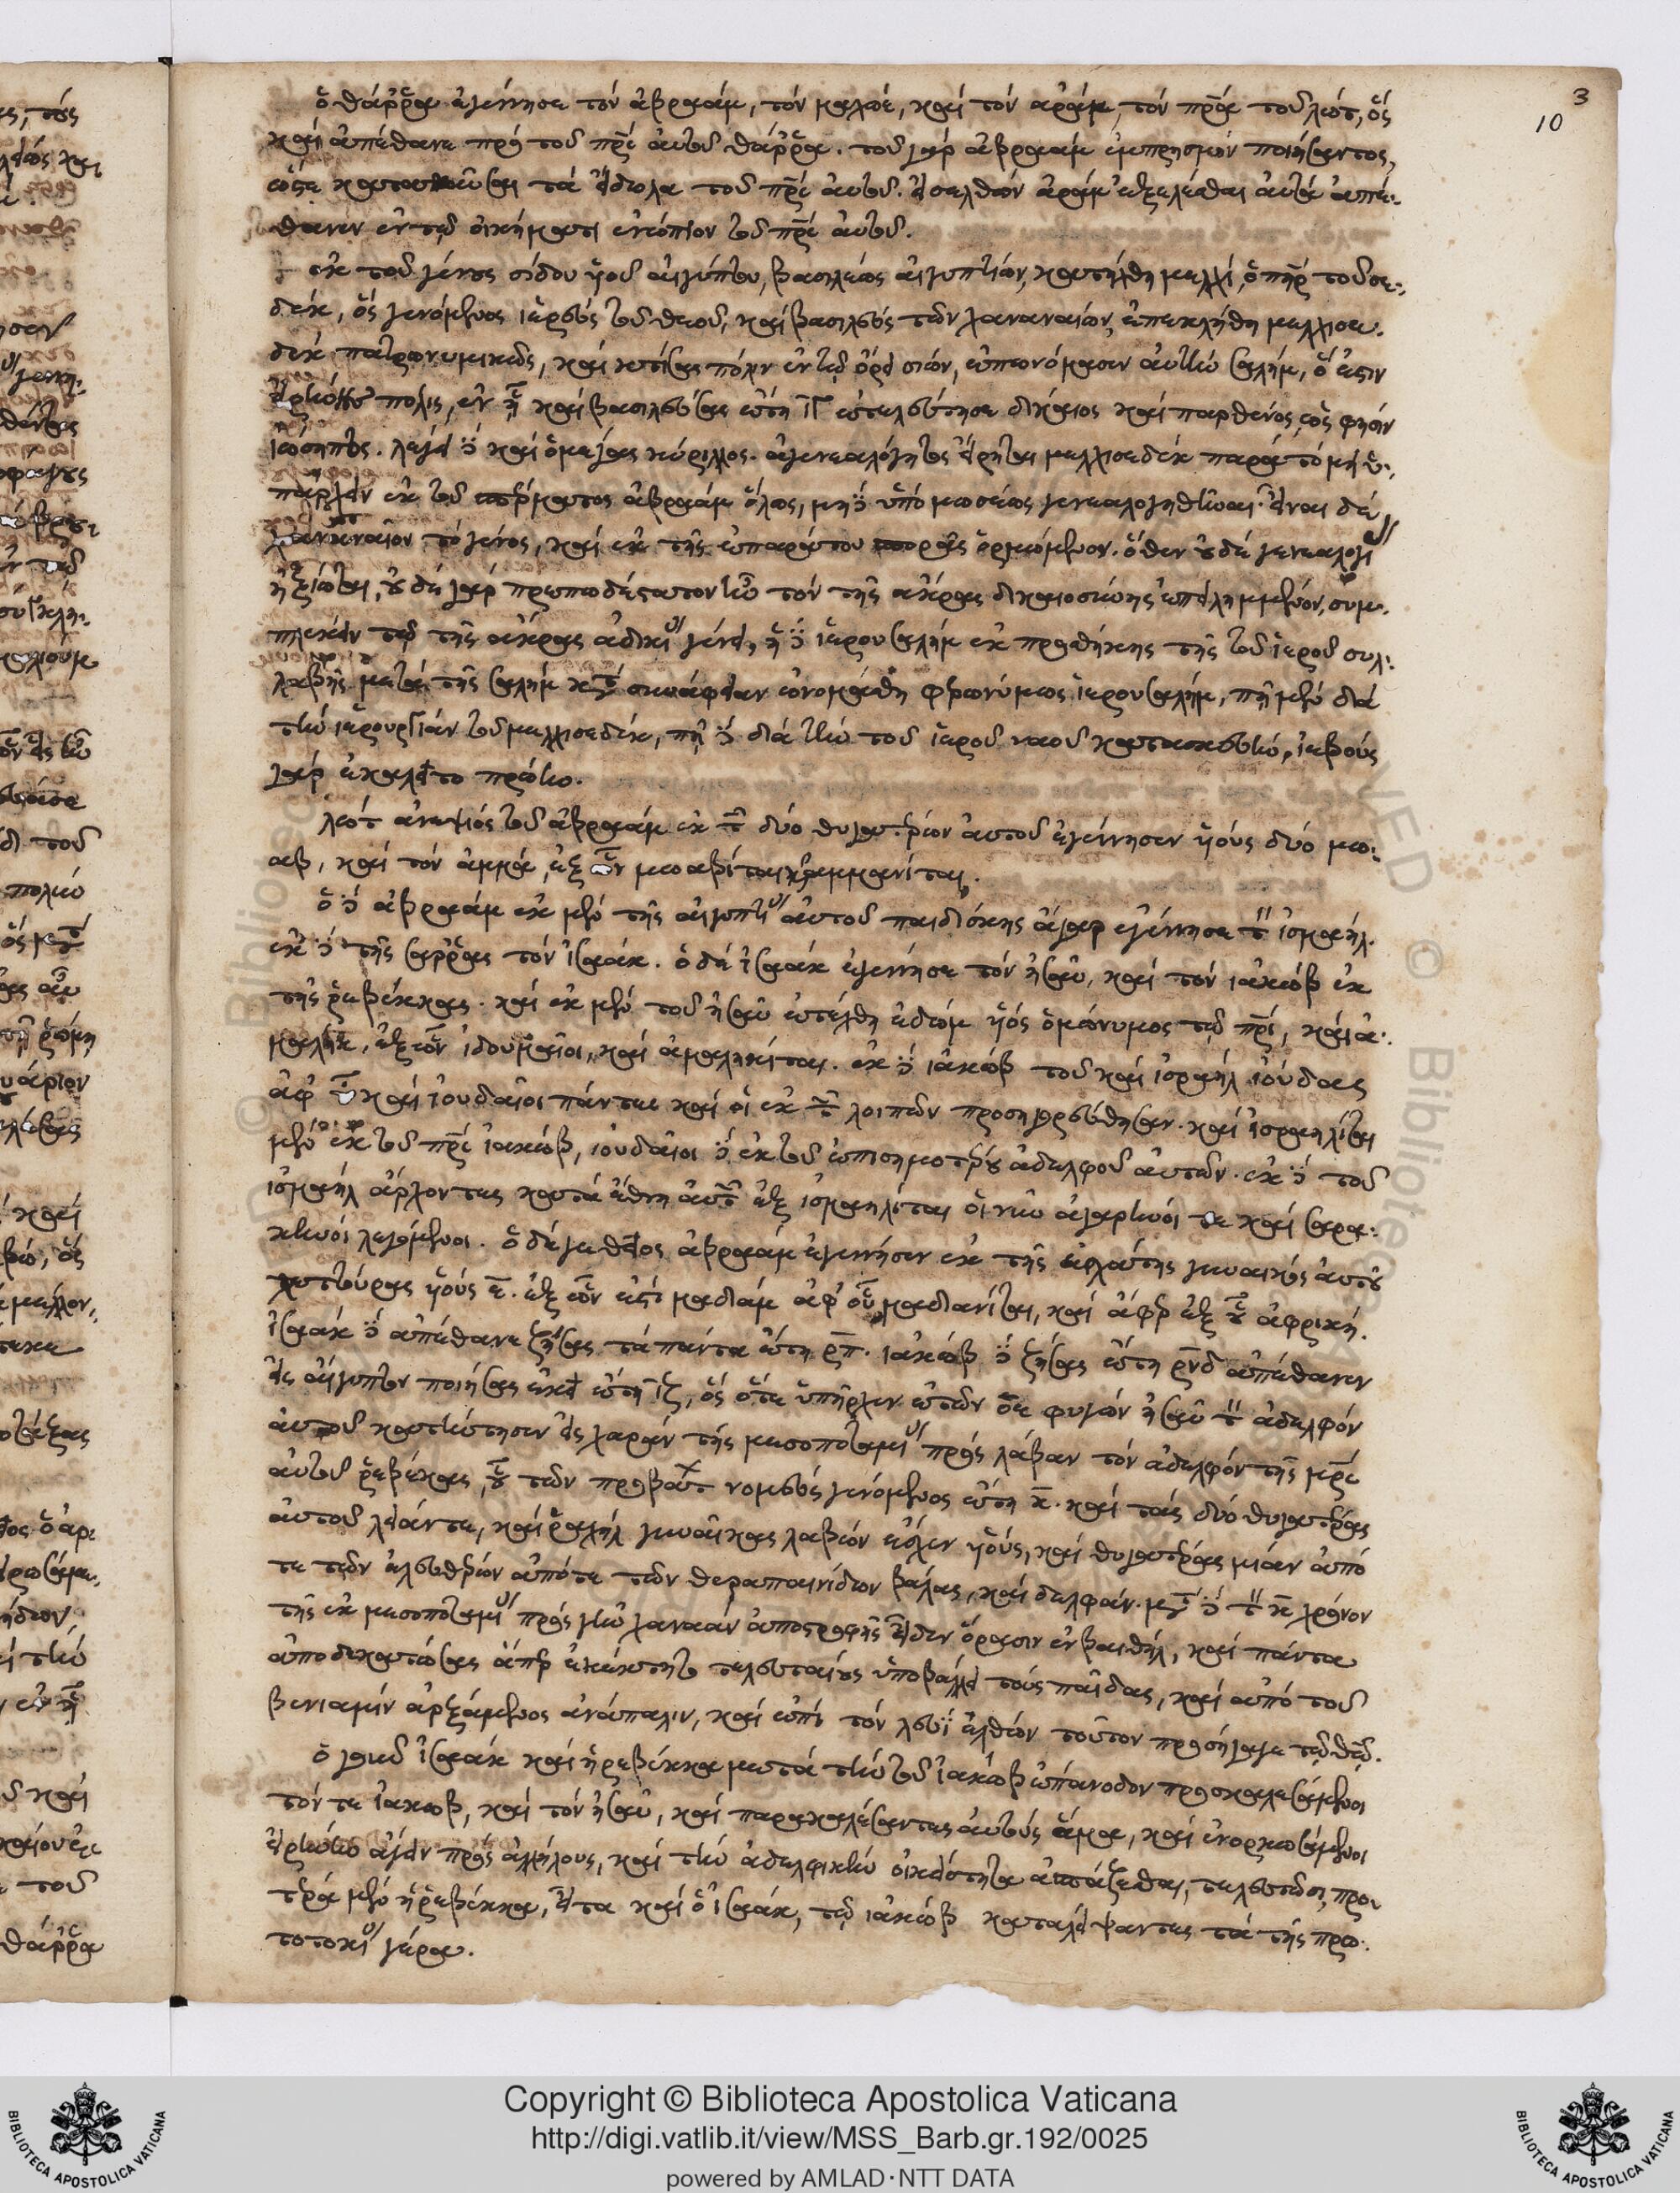 3
10
ὁ θάρρα ἐγέννησε τὸν ἀβραάμ, τὸν ναχώρ, καὶ τὸν ἀράμ, τὸν πρα τοῦ λώτ, ὃς
καὶ ἀπέθανε πρὸ τοῦ πρς αὐτοῦ θάρρα. τοῦ γὰρ ἀβραάμ ἐμπρησμὸν ποιήσαντος,
ὥστε κατακαῦσαι τὰ εἴδωλα τοῦ πρς αὐτοῦ. εἰσελθὼν ἀράμ ἐξελέσθαι αὐτὰ ἀπέ-
θανεν ἐν τῷ οἰκήματι ἐνώπιον τοῦ πρς αὐτοῦ.
ἐκ τοῦ γένους σίδου υἱοῦ αἰγύπτου, βασιλέως αἰγυπτίων, κατήχθη μελχὶ, ὁ πηρ τοῦ σε-
δέκ, ὃς γενόμενος ἱερεὺς τοῦ θεοῦ, καὶ βασιλεὺς τῶν χαναναίων, ἐπεκλήθη μελχισε-
δὲκ πατρωνυμικῶς, καὶ κτίσας πόλιν ἐν τῷ ὄρει σιών, ἐπωνόμασεν αὐτὴν σαλήμ, ὅ ἐστιν
εἰρήνης πόλις, ἐν ᾗ καὶ βασιλεύσας ἔτη ριγ ἐτελεύτησε δίκαιος καὶ παρθένος, ὥς φησιν
ἰώσηπος. λέγει δὲ καὶ ὁ μέγας κύριλλος. ἀγενεαλόγητος εἴρηται μελχισεδὲκ παρὰ τὸ μὴ ὑ-
πάρχειν ἐκ τοῦ σπέρματος ἀβραάμ ὅλως, μὴ δὲ ὑπὸ μωσέως γενεαλογηθῆναι. εἶναι δὲ
χαναναῖον τὸ γένος, καὶ ἐκ τῆς ἐπαράτου σπορᾶς ὁρμώμενον. ὅθεν οὐδὲ γενεαλογίας
ἠξίωται, οὐδὲ γὰρ πρεπωδέστατον ἦν τὸν τῆς ἄκρας δικαιοσύνης ἐπειλημμένον, συμ-
πλέκειν τῷ τῆς ἄκρας ἀδικίας γένει, ἡ δὲ ἱερουσαλήμ ἐκ προσθήκης τῆς τοῦ ἱεροῦ συλ-
λαβῆς μετὰ τῆς σαλήμ κατὰ συνάφειαν ὠνομάσθη φερωνύμως ἱερουσαλήμ, πῆ μὲν διὰ
τὴν ἱερουργίαν τοῦ μελχισεδέκ, πῆ δὲ διὰ τὴν τοῦ ἱεροῦ ναοῦ κατασκευήν, ἰεβοὺς
γὰρ ἐκαλεῖτο πρώην.
λὼτ ἀνεψιὸς τοῦ ἀβραάμ ἐκ τῶν δύο θυγατέρων αὐτοῦ ἐγέννησεν υἱοὺς δύο μω-
άβ, καὶ τὸν ἀμμά, ἐξ ὧν μωαβίται καὶ ἀμμανίται.
ὁ δὲ ἀβραάμ ἐκ μὲν τῆς αἰγυπτίας αὐτοῦ παιδίσκης ἄγαρ ἐγέννησε τὸν ἰσμαήλ.
ἐκ δὲ τῆς σάρρας τὸν ἰσαάκ. ὁ δὲ ἰσαάκ ἐγέννησε τὸν ἠσαῦ, καὶ τὸν ἰακώβ ἐκ
τῆς ῥεβέκκας. καὶ ἐκ μὲν τοῦ ἠσαῦ ἐτέχθη ἐδώμ υἱὸς ὁμώνυμος τῷ πρι, καὶ ἀ-
μαλήκ, ἐξ ὧν ἰδουμαῖοι, καὶ ἀμαληκίται. ἐκ δὲ ἰακώβ τοῦ καὶ ἰσραήλ ἰούδας
ἀφ' οὗ καὶ ἰουδαῖοι πάντες καὶ οἱ ἐκ τῶν λοιπῶν προσηγορεύθησαν. καὶ ἰσραηλῖται
μὲν ἐκ τοῦ πρς ἰακώβ, ἰουδαῖοι δὲ ἐκ τοῦ ἐπισημοτέρου ἀδελφοῦ αὐτῶν. ἐκ δὲ τοῦ
ἰσμαήλ ἄρχοντες κατὰ ἔθνη αὐτῶν ἐξ ἰσμαηλίται οἱ νῦν ἀγαρηνοί τε καὶ σαρα-
κηνοὶ λεγόμενοι. ὁ δέ γε θεῖος ἀβραάμ ἐγέννησεν ἐκ τῆς ἐσχάτης γυναικὸς αὐτοῦ
χεττούρας υἱοὺς ε. ἐξ ὧν ἐστὶ μαδιάμ ἀφ' οὗ μαδιανῖται, καὶ ἄφερ ἐξ οὗ ἀφρική.
ἰσαάκ δὲ ἀπέθανε ζήσας τὰ πάντα ἔτη ρπ. ἰακώβ δὲ ζήσας ἔτη ρνδ ἀπέθανεν
εἰς αἴγυπτον ποιήσας ἐκεῖ ἔτη ιζ, ὃς ὅτε ὑπῆρχεν ἐτῶν οε φυγὼν ἠσαῦ τὸν ἀδελφὸν
αὐτοῦ κατήντησεν εἰς χαρὰν τῆς μεσοποταμίας πρὸς λάβαν τὸν ἀδελφὸν τῆς μρς
αὐτοῦ ῥεβέκας, οὗ τῶν προβάτων νομεὺς γενόμενος ἔτη κ. καὶ τὰς δύο θυγατέρας
αὐτοῦ λείαν τε, καὶ ῥαχήλ γυναῖκας λαβὼν ἔσχεν υἱοὺς, καὶ θυγατέρας μίαν ἀπό
τε τῶν ἐλευθέρων ἀπό τε τῶν θεραπαινίδων βάλας, καὶ δελφάν. μετὰ δὲ τὸν κ χρόνον
τῆς ἐκ μεσοποταμίας πρὸς γῆν χαναὰν ἀποστροφῆς εἶδεν ὅρασιν ἐν βαιθήλ, καὶ πάντα
ἀποδεκατώσας ἅπερ ἐκέκτητο τελευταίους ὑποβάλλει τοὺς παῖδας, καὶ ἀπὸ τοῦ
βενιαμὶν ἀρξάμενος ἀνάπαλιν, καὶ ἐπὶ τὸν λευὶ ἐλθὼν τοῦτον προσήγαγε τῷ θῷ.
ὁ γοῦν ἰσαάκ καὶ ἡ ῥεβέκκα μετὰ τὴν τοῦ ἰακώβ ἐπάνοδον προσκαλεσάμενοι
τόν τε ἰακώβ, καὶ τὸν ἠσαῦ, καὶ παρακαλέσαντες αὐτοὺς ἅμα, καὶ ἐνορκωσάμενοι
εἰρήνην ἄγειν πρὸς ἀλλήλους, καὶ τὴν ἀδελφικὴν οἰκειότητα ἀσπάζεσθαι, τελευτῶσι, προ-
τέρα μὲν ἡ ῥεβέκκα, εἶτα καὶ ὁ ἰσαάκ, τῷ ἰακώβ καταλείψαντες τὰ τῆς πρω-
τοτοκίας γέρα.
Copyright © Biblioteca Apostolica Vaticana
http://digi.vatlib.it/view/MSS_Barb.gr.192/0025
powered by AMLAD·NTT DATA
BIBLIOTECA APOSTOLICA VATICANA
BIBLIOTECA APOSTOLICA VATICANA